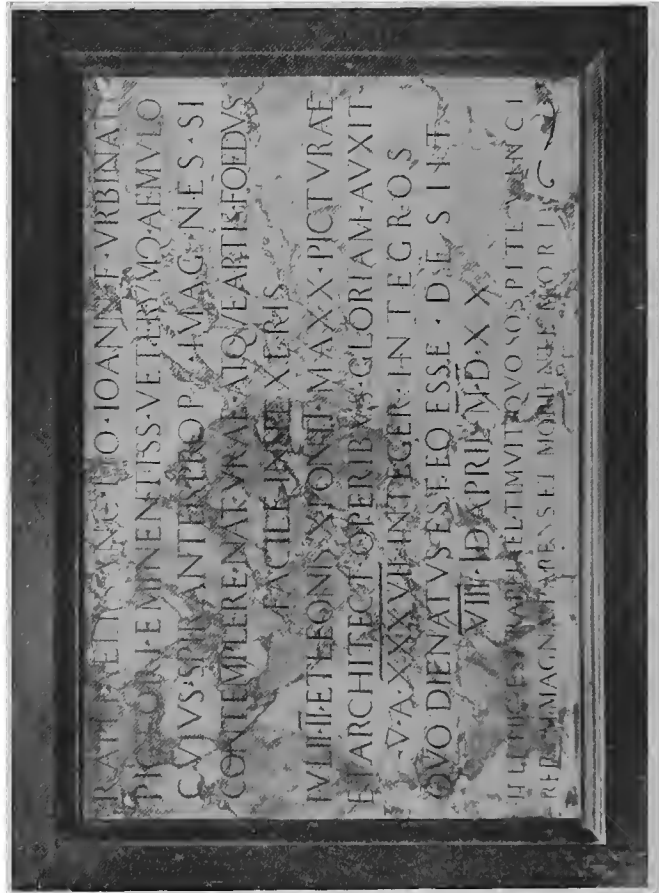 RAPHAELI · SANCTIO · IOANN · F · VRBINATI
PICTORI · EMINENTISS · VETERVMQ · AEMVLO
CVIVS · SPIRANTEIS · PROPE · IMAGINES · SI
CONTEMPLERE · NATVRAE · ATQVE · ARTIS · FOEDVS
FACILE · INSPEXERIS
IVLII · II · ET · LEONIS · X · PONTT · MAXX · PICTVRAE
ET · ARCHITECT · OPERIBVS · GLORIAM · AVXIT
V · A · XXXVII · INTEGER · INTEGROS
QVO · DIE · NATVS · EST · EO · ESSE · DESIIT
VIII · ID · APRIL · M · D · XX
ILLE HIC EST RAPHAEL TIMVIT QVO SOSPITE VINCI
RERVM MAGNA PARENS ET MORIENTE MORI